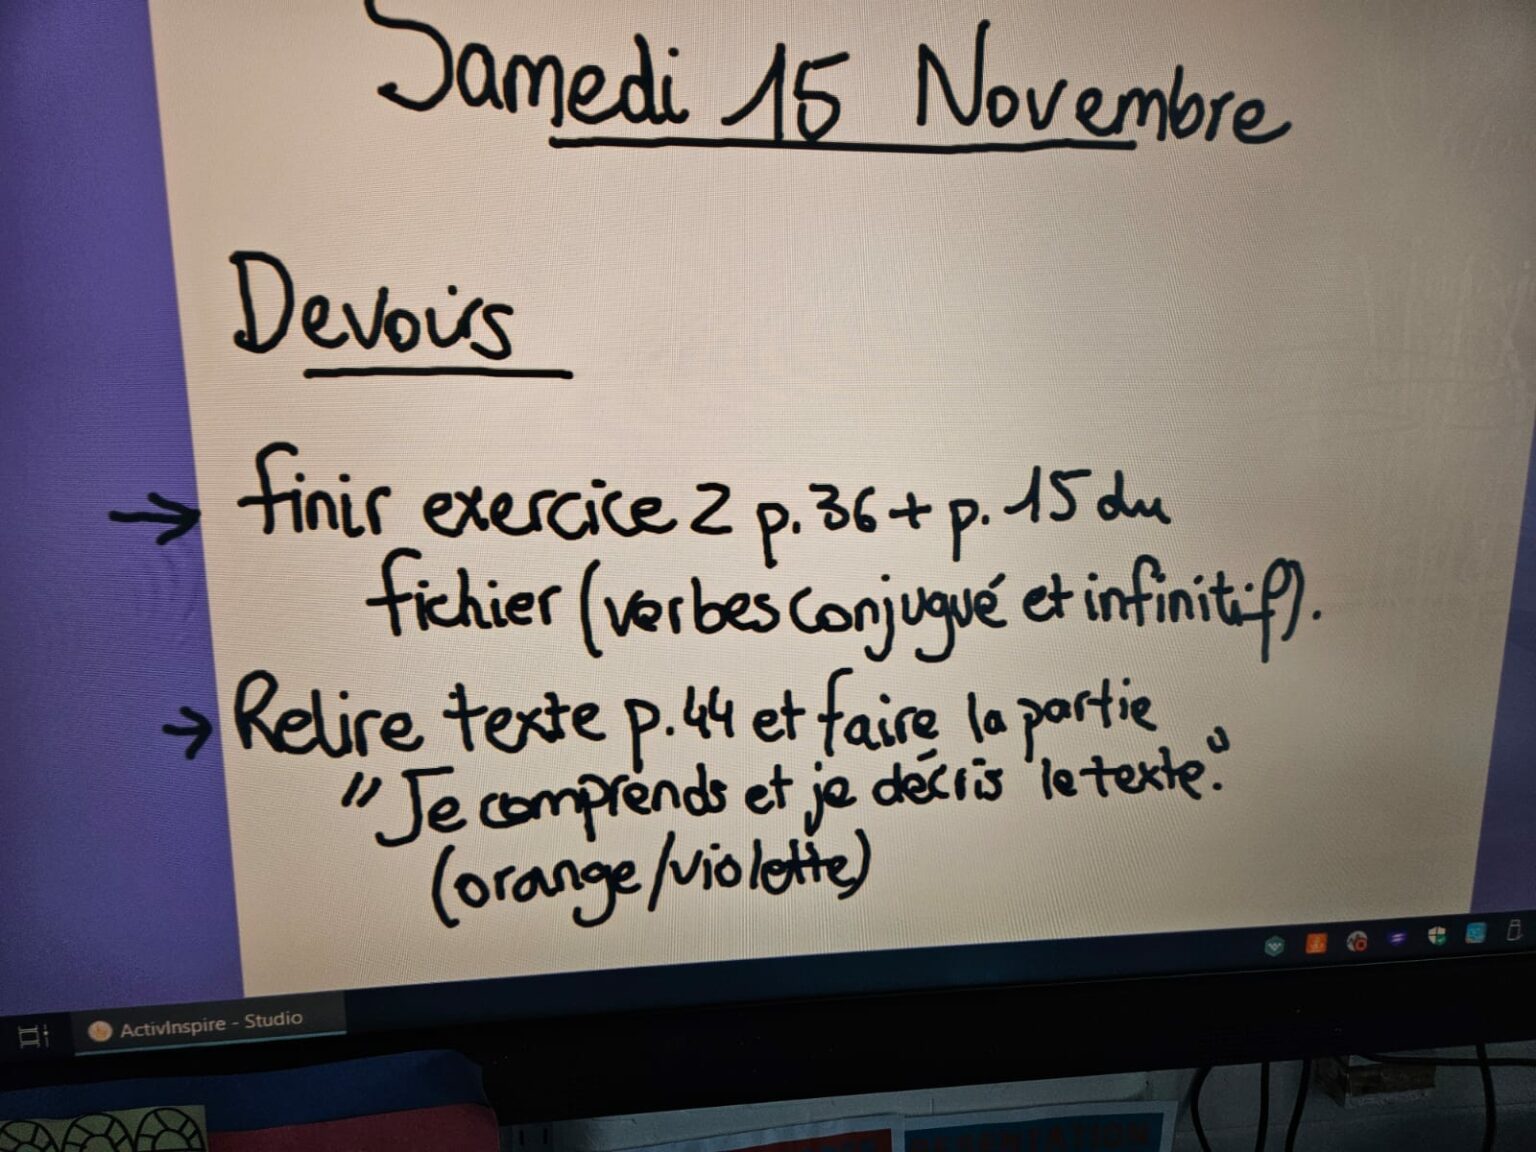 Samedi 15 Novembre
Devoirs
→ finir exercice 2 p. 36 + p. 15 du
fichier (verbes conjugué et infinitif).
→ Relire texte p. 44 et faire la partie
"Je comprends et je décris le texte."
(orange/violette)
ActivInspire - Studio